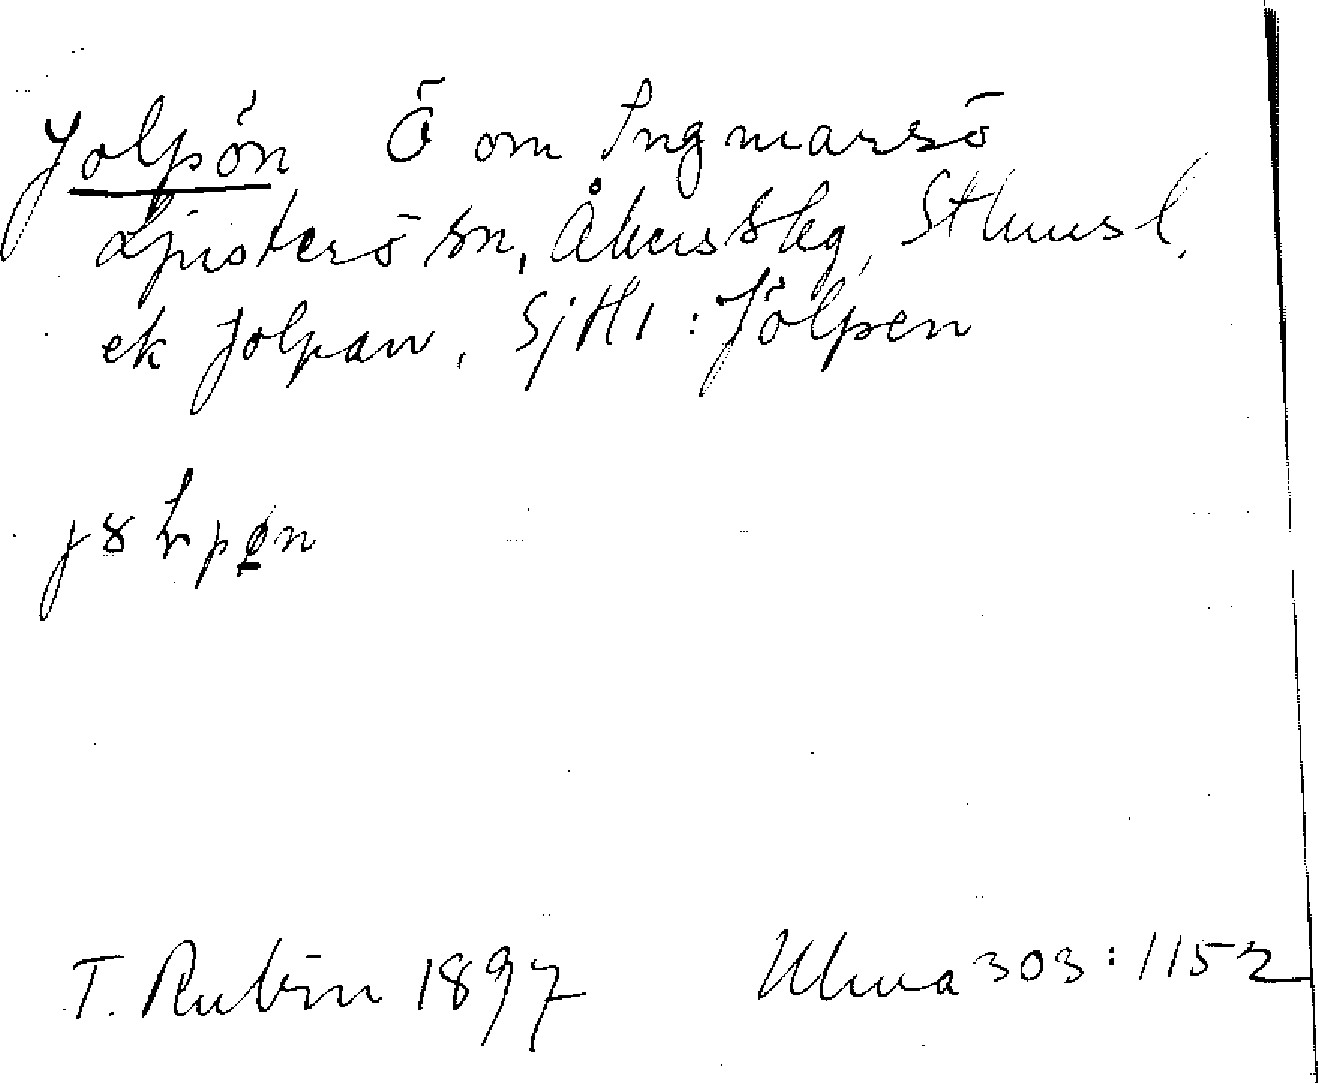 Jolpön Ö om Ingmarsö
Ljusterö sn, Åkers skg, Sthms l.
ek Jolpan, SjK1: Jölpen
T. Rubin 1897 Uluva 303:1152